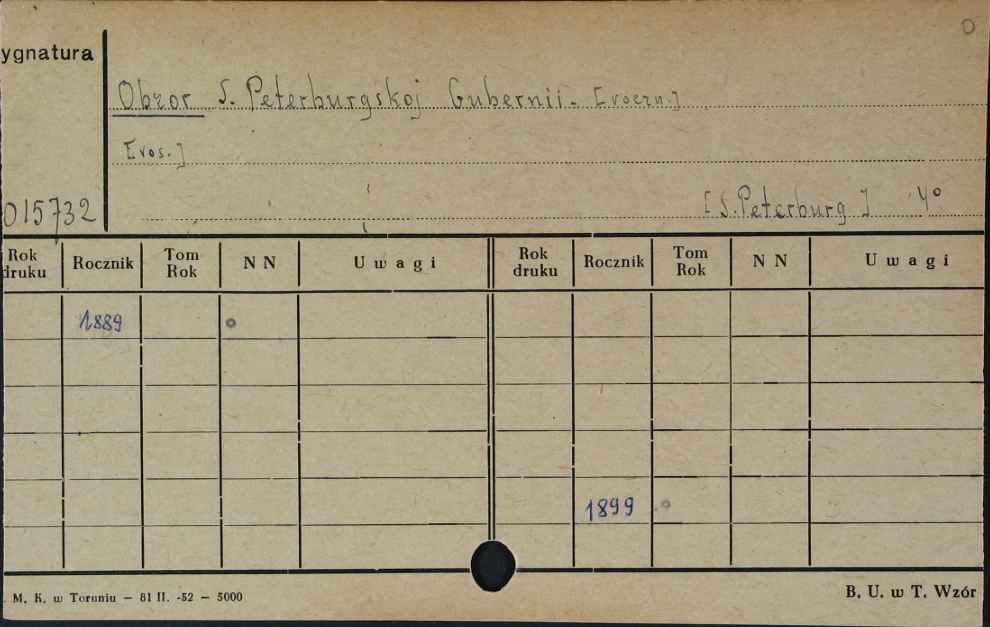 ygnatura
Obzor S. Peterburgskoj Gubernii. [roczn.]
[ros.]
015732
[S. Peterburg] 4°
Rok druku Rocznik Tom Rok N N Uwagi Rok druku Rocznik Tom Rok N N Uwagi
1889
1899
. M. K. w Toruniu — 81 II. -52 — 5000
B. U. w T. Wzór